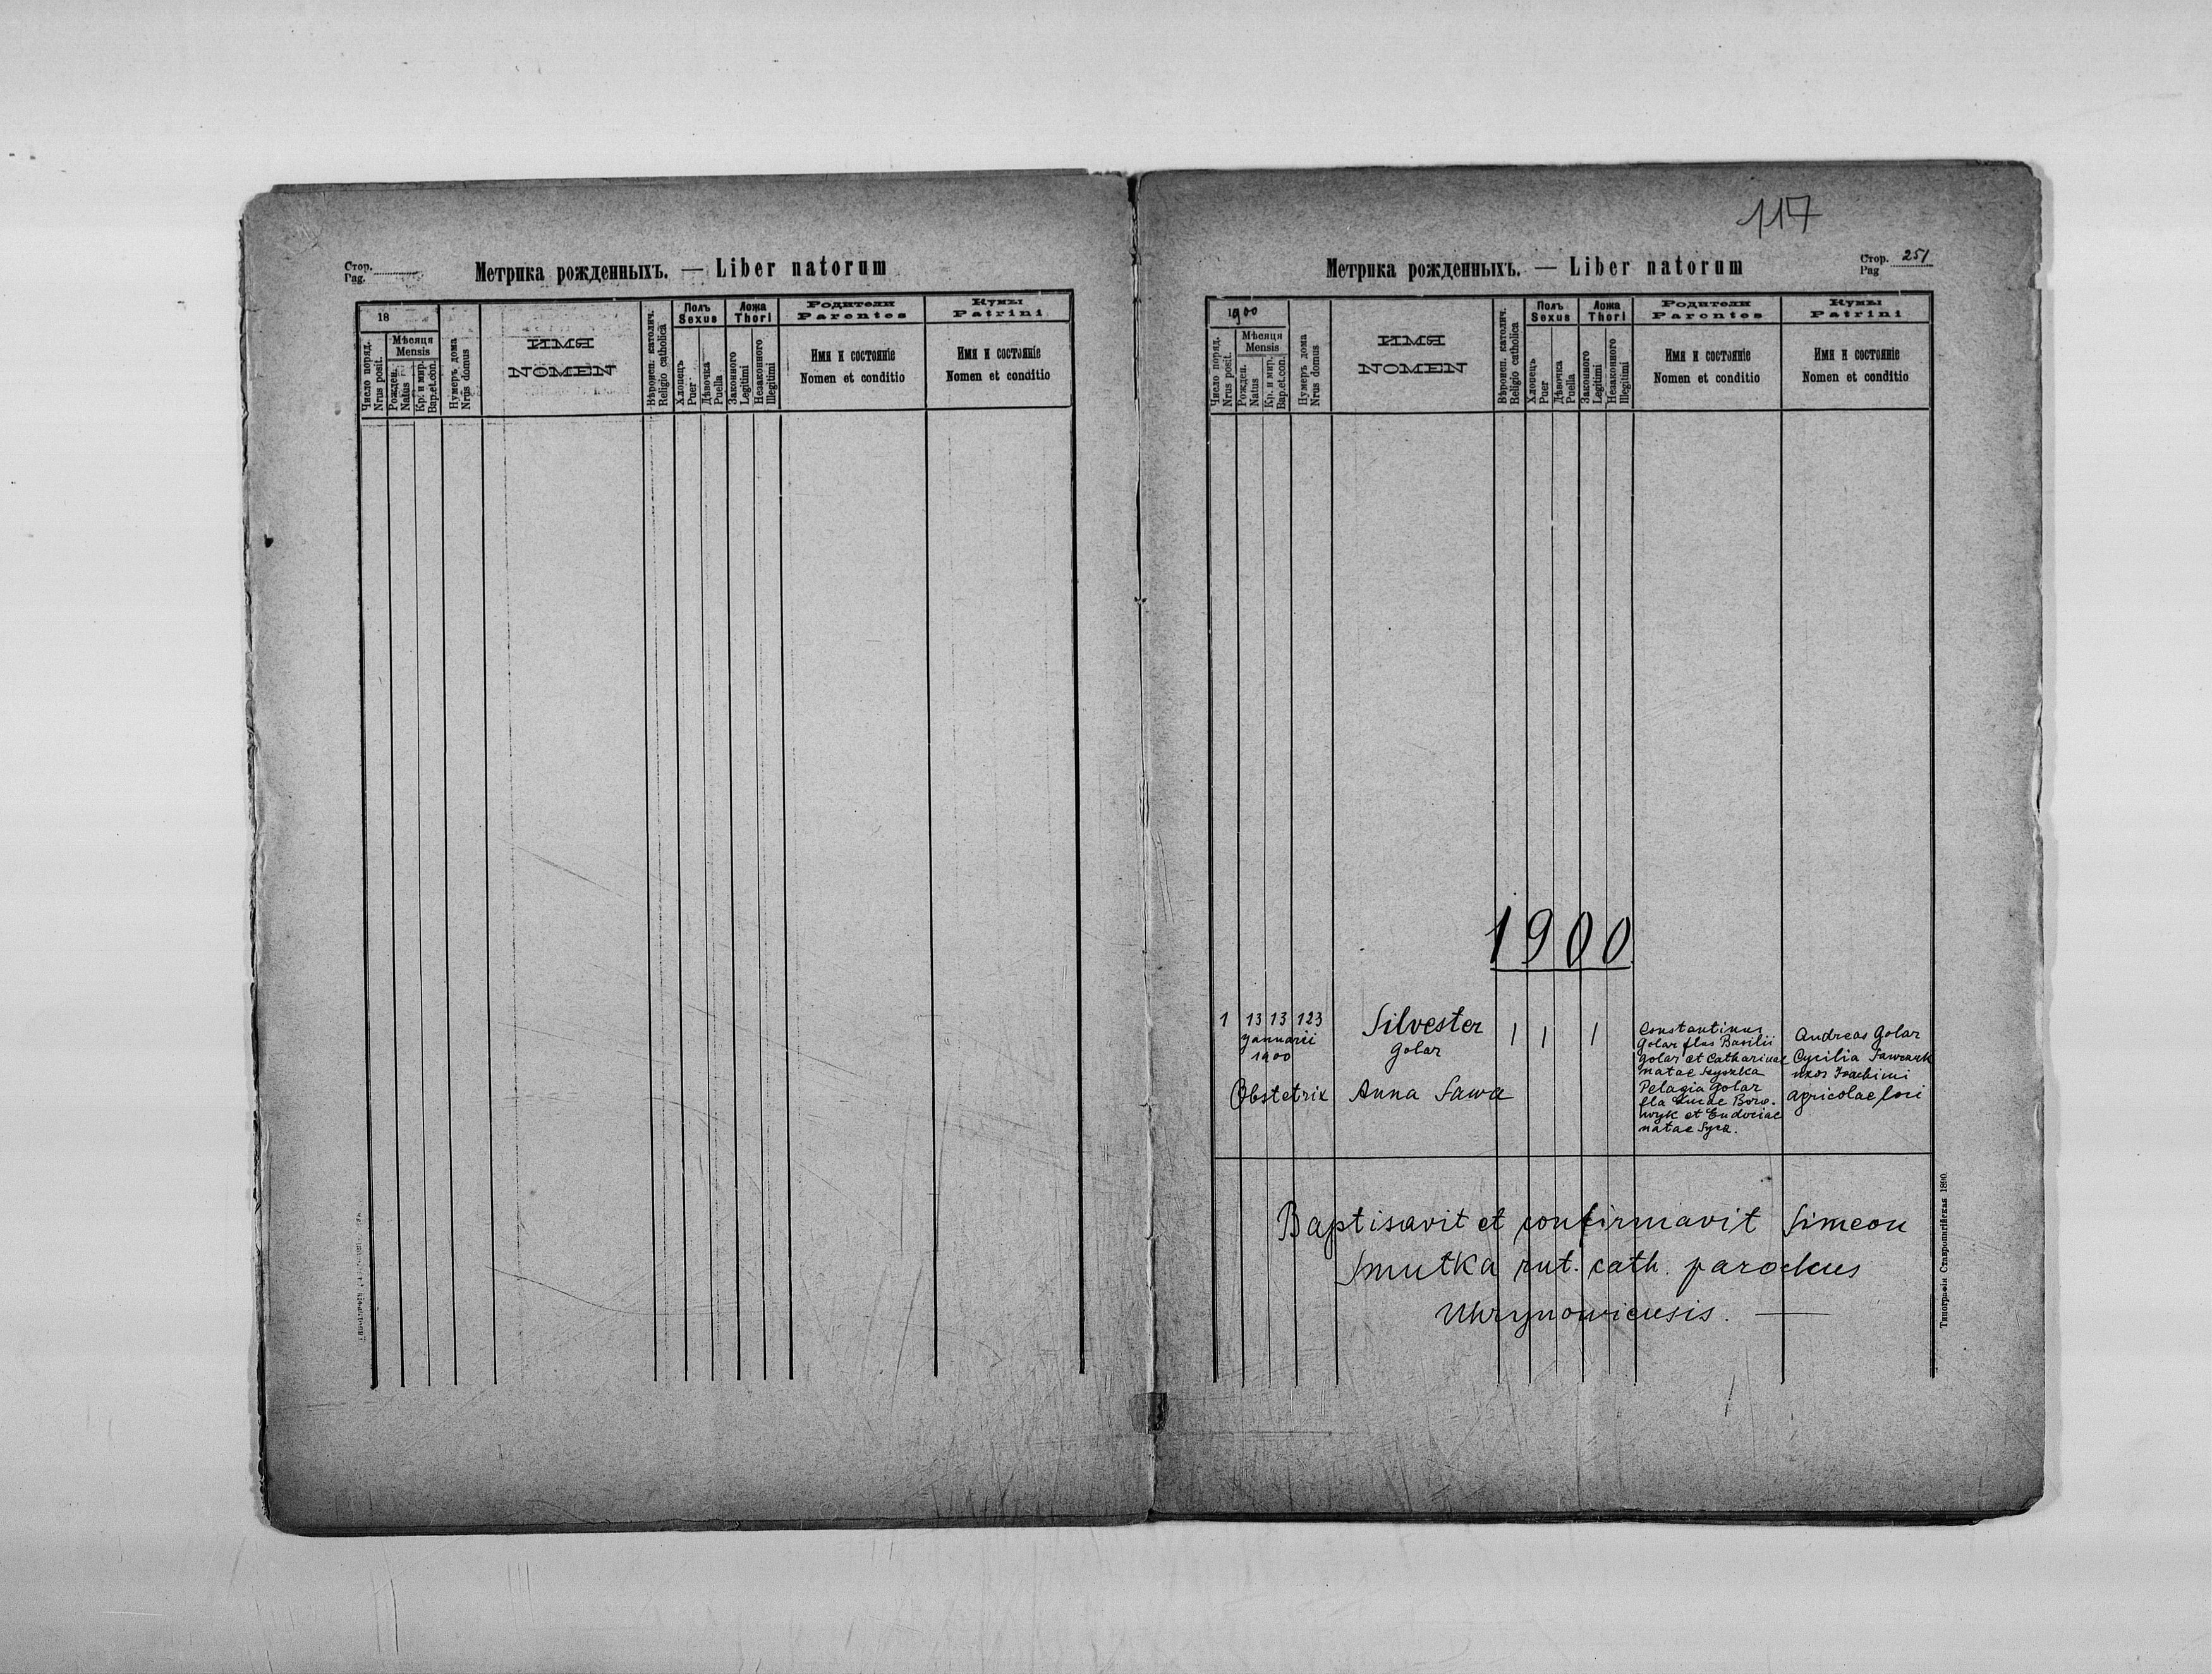 Стор.
Pag.
Метрика рожденныхъ. — Liber natorum
18
Число поряд.
Nrus posit.
Мѣсяця
Mensis
Рожден.
Natus
Кр. и мир.
Bap.et.con.
Нумеръ дома
Nrus domus
ИМЯ
NOMEN
Вѣроисп. католич.
Religio catholica
Полъ
Sexus
Хлопецъ
Puer
Дѣвочка
Puella
Ложа
Thori
Законного
Legitimi
Незаконного
Illegitimi
Родители
Parentes
Имя и состояніе
Nomen et conditio
Кумы
Patrini
Имя и состояніе
Nomen et conditio
117
Метрика рожденныхъ. — Liber natorum
Стор. 251
Pag
1900
Число поряд.
Nrus posit.
Мѣсяця
Mensis
Рожден.
Natus
Кр. и мир.
Bap.et.con.
Нумеръ дома
Nrus domus
ИМЯ
NOMEN
Вѣроисп. католич.
Religio catholica
Полъ
Sexus
Хлопецъ
Puer
Дѣвочка
Puella
Ложа
Thori
Законного
Legitimi
Незаконного
Illegitimi
Родители
Parentes
Имя и состояніе
Nomen et conditio
Кумы
Patrini
Имя и состояніе
Nomen et conditio
1900
1 13 13 123
Januarii
1900
Silvester
Golar
1 1 1
Constantinus
Golar flus Basilii
Golar et Catharinae
natae Szyszka
Pelagia Golar
fla Lucae Boro-
wyk et Eudociae
natae Sycz.
Andreas Golar
Cycilia Sawczuk
uxor Joachimi
agricolae loci
Obstetrix Anna Sawa
Baptisavit et confirmavit Simeon
Smutka rut. cath. parochus
Uhrynowiensis. —
Типографія Ставропигійская 1890.